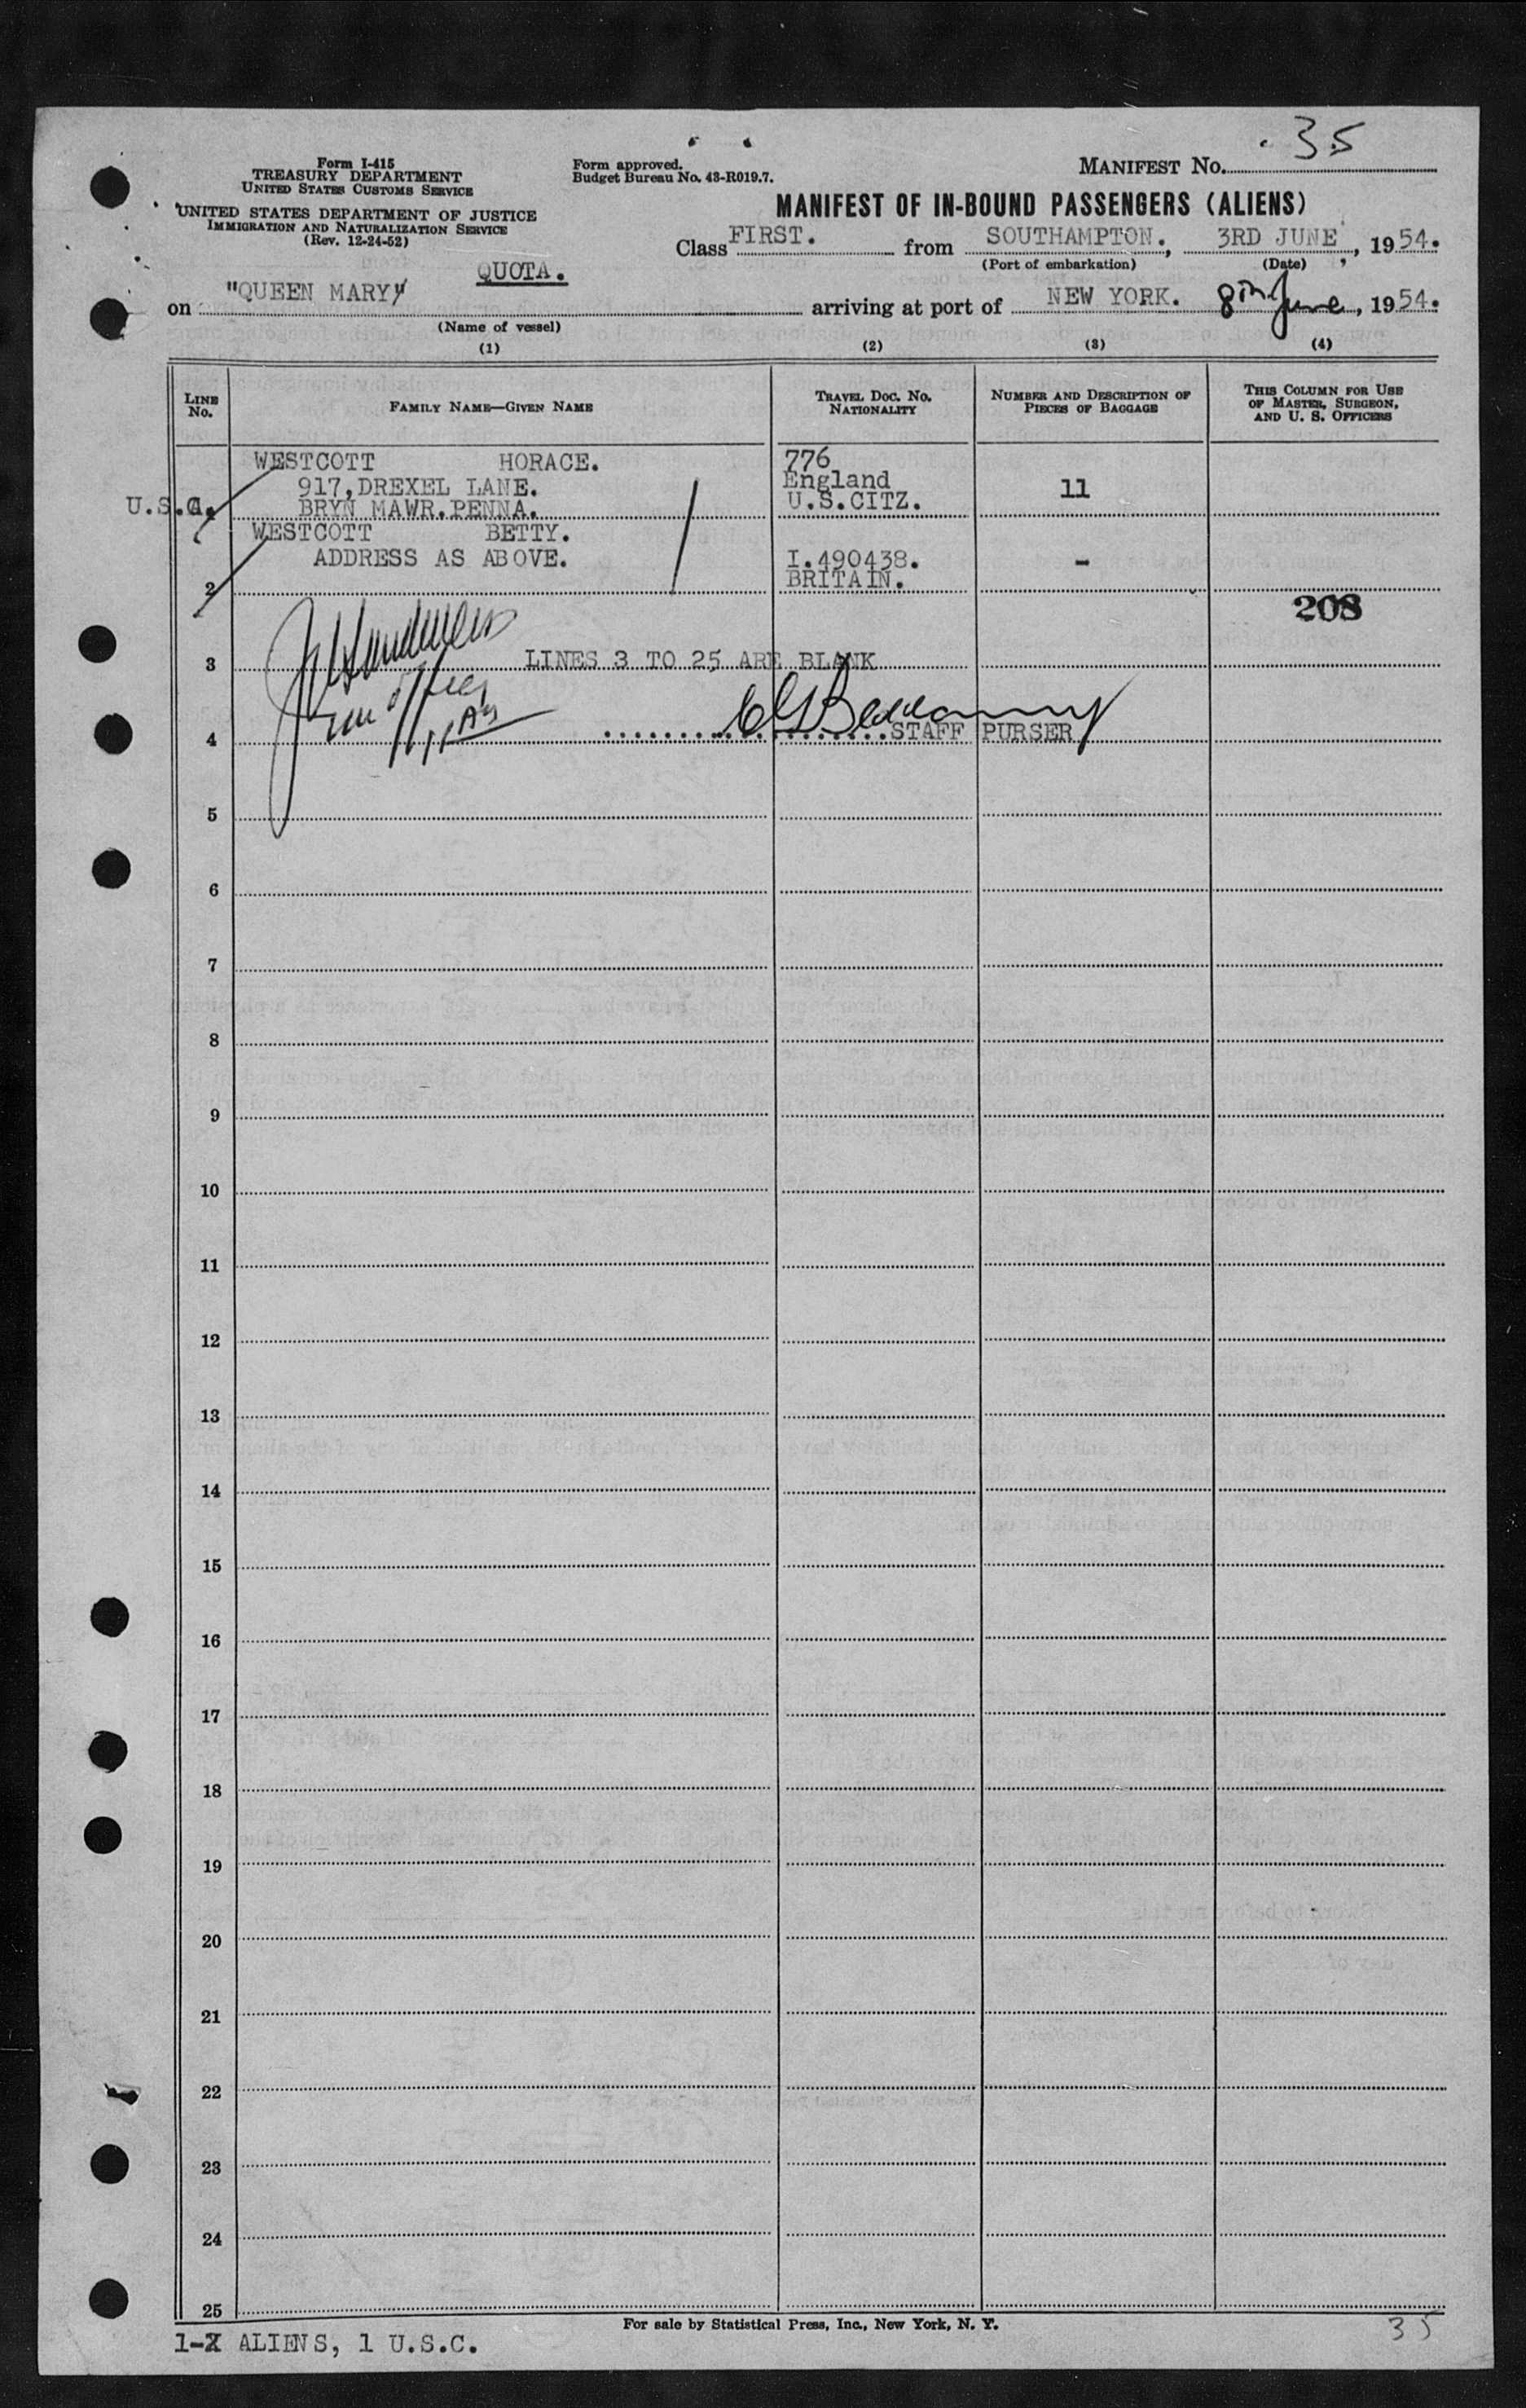 Form I-415
TREASURY DEPARTMENT
UNITED STATES CUSTOMS SERVICE
UNITED STATES DEPARTMENT OF JUSTICE
IMMIGRATION AND NATURALIZATION SERVICE
(Rev. 12-24-52)
Form approved.
Budget Bureau No. 43-R019.7.
MANIFEST No. 35
MANIFEST OF IN-BOUND PASSENGERS (ALIENS)
Class FIRST. from SOUTHAMPTON., 3RD JUNE, 1954.
(Port of embarkation) (Date)
QUOTA.
on "QUEEN MARY" arriving at port of NEW YORK. 8th June, 1954.
(Name of vessel)
(1) (2) (3) (4)
LINE No. FAMILY NAME—GIVEN NAME TRAVEL DOC. No. NATIONALITY NUMBER AND DESCRIPTION OF PIECES OF BAGGAGE THIS COLUMN FOR USE OF MASTER, SURGEON, AND U. S. OFFICERS
WESTCOTT HORACE. 776
917, DREXEL LANE. England
U.S.C. BRYN MAWR. PENNA. U.S.CITZ. 11
WESTCOTT BETTY.
ADDRESS AS ABOVE. I.490438. -
2 BRITAIN.
208
3 LINES 3 TO 25 ARE BLANK
4 STAFF PURSER
5
6
7
8
9
10
11
12
13
14
15
16
17
18
19
20
21
22
23
24
25
For sale by Statistical Press, Inc., New York, N. Y.
35
1- ALIENS, 1 U.S.C.